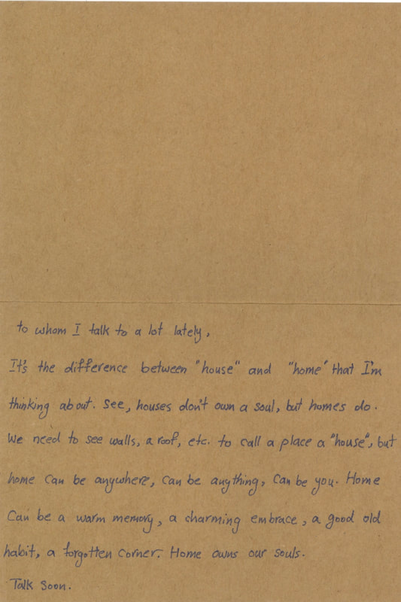 to whom I talk to a lot lately,
It's the difference between "house" and "home" that I'm
thinking about. See, houses don't own a soul, but homes do.
We need to see walls, a roof, etc. to call a place a "house", but
home can be anywhere, can be anything, can be you. Home
can be a warm memory, a charming embrace, a good old
habit, a forgotten corner. Home owns our souls.
Talk soon.